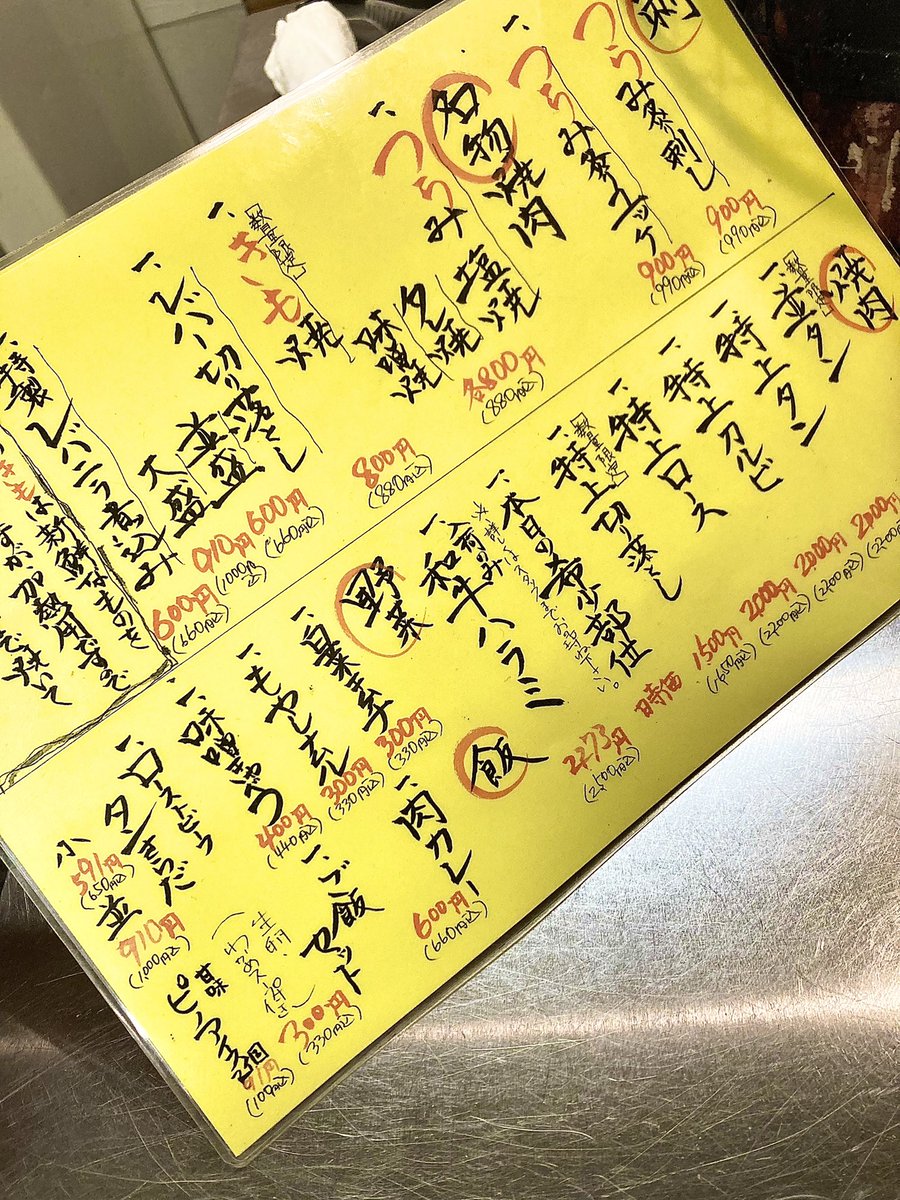 刺
一、つらみ炙り刺し 900円 (990税込)
一、つらみ炙ユッケ 900円 (990税込)
名物焼肉
一、つらみ 塩焼 タレ焼 味噌焼 各800円 (880税込)
一、【数量限定】きも焼 800円 (880税込)
一、レバー切り落とし 600円 (660税込)
並盛 910円 (1000税込)
大盛
一、特製レバニラ煮込み 600円 (660税込)
きもは新鮮なものを
ですが加熱用ですので
焼いて
焼肉
一、【数量限定】並タン 2000円 (2200税込)
一、特上タン 2000円 (2200税込)
一、特上カルビ 2000円 (2200税込)
一、特上ロース 2000円 (2200税込)
一、【数量限定】特上切り落とし 1500円 (1,650税込)
一、本日の希少部位 時価
※詳しくはスタッフまでお尋ね下さい。
一、入荷のみ 和牛ハラミ 2273円 (2500税込)
野菜
一、白菜キムチ 300円 (330税込)
一、もやしナムル 300円 (330税込)
一、味噌きゅう 400円 (440税込)
一、ローストビーフ
タンさらだ
小 591円 (650税込)
並 910円 (1,000税込)
飯
一、肉カレー 600円 (660税込)
一、ご飯セット 300円 (330税込)
甘味
ピノアイス2個 91円 (100税込)